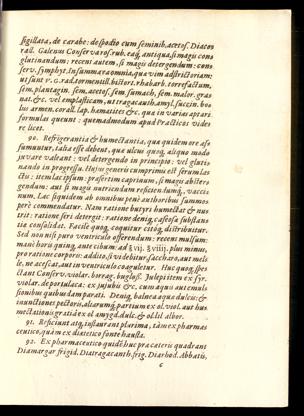 sigillata, de carabe: de spodio cum seminib. acetos. Diacorall.
Galenus Conservaros. rub. eaq; antiqua, si magis conglutinandum;
recenti autem, si magis detergendum: conserv.
symphyt. In summa ea omnia, quæ vim adstrictoriam:
ut sunt v. g. rad. tormentill. bistort. rhabarb. torrefactum,
sem. plantagin. sem. acetos. sem. sumach, sem. malor. granat.
&c. vel emplasticam, ut tragacanth. amyl. succin. bolus
armen. corall. lap. hæmatites &c. quæ in varias
formulas queunt: quemadmodum apud Practicos videre
licet.
90. Refrigerantia & humectantia, quæ quidem ore assumuntur,
talia esse debent, quæ ulcus quoq; aliquo modo
juvare valeant: vel detergendo in principio: vel glutinando
in progressu. Hujus generis cumprimis est serum lactis:
item lac ipsum: præsertim caprinum, si magis abstergendum:
aut si magis nutriendum reficiendumq; vaccinum.
Lac siquidem ab omnibus penè authoribus summopere
commendatur. Nam ratione butyri humectat & nutrit:
ratione seri detergit: ratione deniq; caseosæ substantiæ
consolidat. Facilè quoq; coquitur citoq; distribuitur.
Sed non nisi puro ventriculo offerendum: recens mulsum:
manè horis quinq; ante cibum: ad ℥ vij. ℥ viij. plus minus,
pro ratione corporis: addito, si videbitur, saccharo, aut melle,
ne acescat, aut in ventriculo coaguletur. Huc quoq; spectant
Conserv. violar. borrag. bugloss. Julep item ex syr.
violar. de portulaca: ex jujubis &c. cum aquis aut emulsionibus
quibusdam parati. Deniq; balnea aquæ dulcis: &
inunctiones pectoris, aliarumq; partium ex ol. viol. aut humectationis
gratiâ ex ol. amygd. dulc. & ol. lil. albor.
91. Reficiunt atq; instaurant plurima, tàm ex pharmaceutico,
quàm ex diætetico fonte hausta.
92. Ex pharmaceutico quidē huc præ cæteris quadrant
Diamargar. frigid. Diatragacanth. frig. Diarhod. Abbatis,